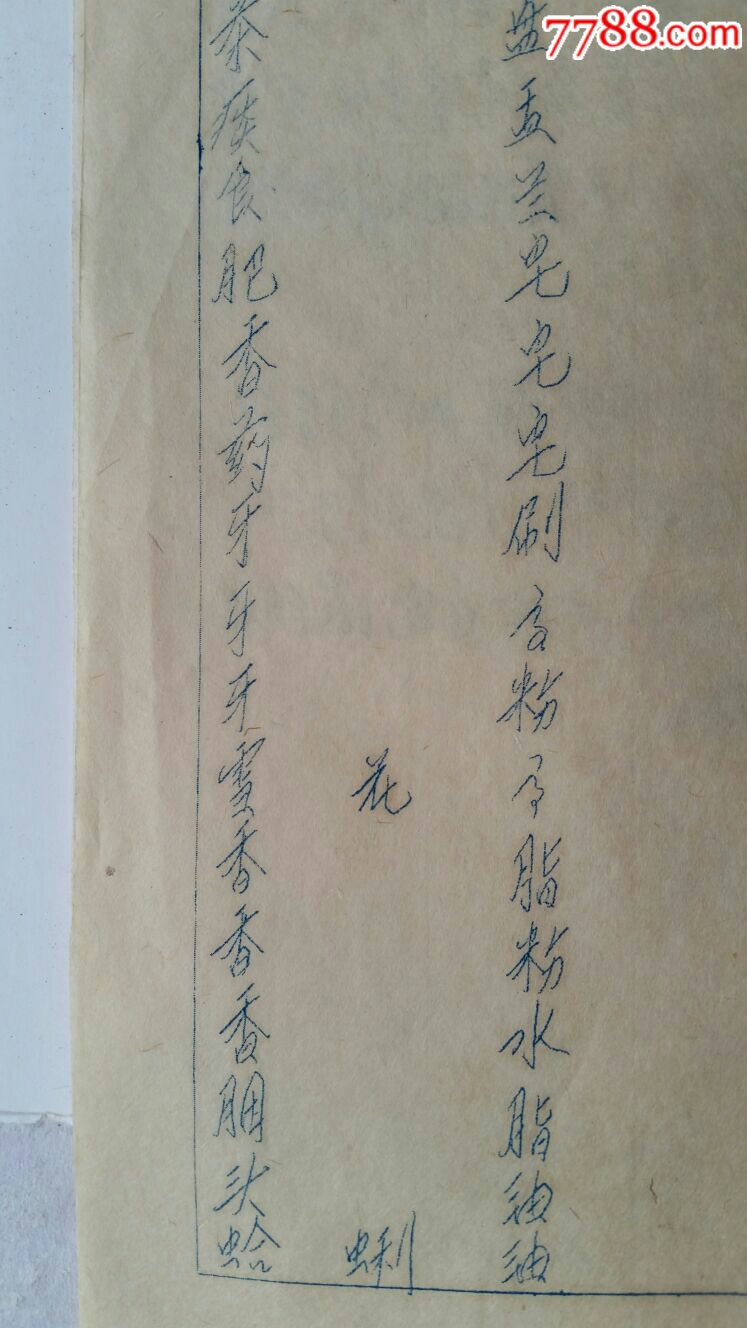 7788.com
茶盘
痰盂
食兰
肥皂
香皂
药皂
牙刷
牙膏
牙粉
雪花膏
香脂
香粉
香水
胭脂
头油
蛤蜊油